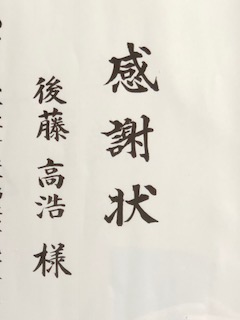 感謝状
後藤 高浩 様